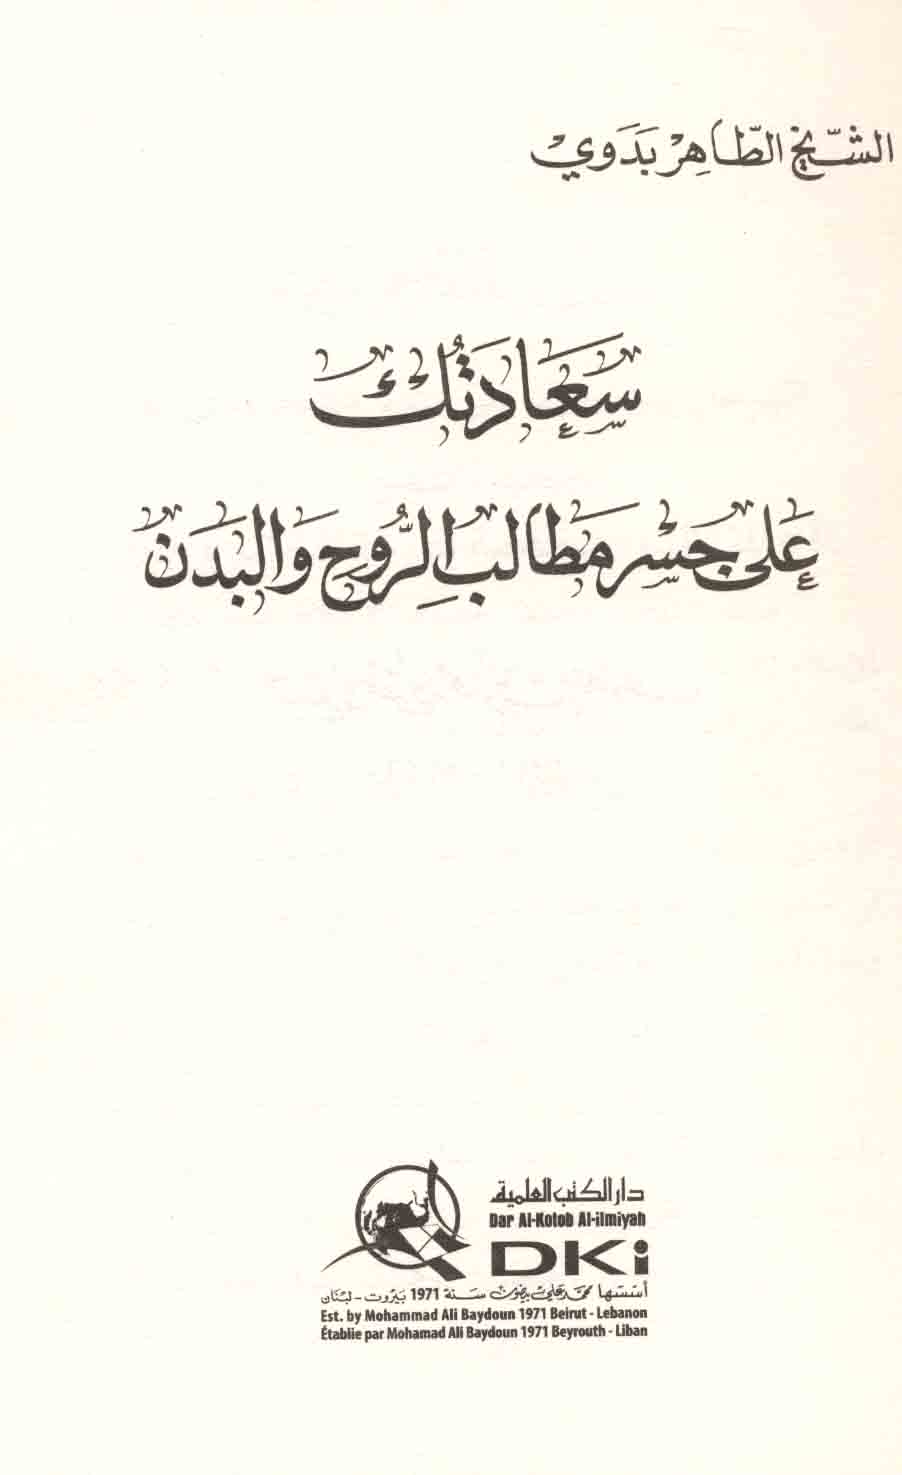 الشّيخ الطّاهِرْ بَدَوِيْ
سَعَادَتُكَ
عَلَى جَسْرِ مَطَالِبِ الرُّوحِ وَالبَدَنْ
دار الكتب العلمية
Dar Al-Kotob Al-ilmiyah
DKi
أسسها محمد علي بيضون سنة 1971 بيروت - لبنان
Est. by Mohammad Ali Baydoun 1971 Beirut - Lebanon
Établie par Mohamad Ali Baydoun 1971 Beyrouth - Liban